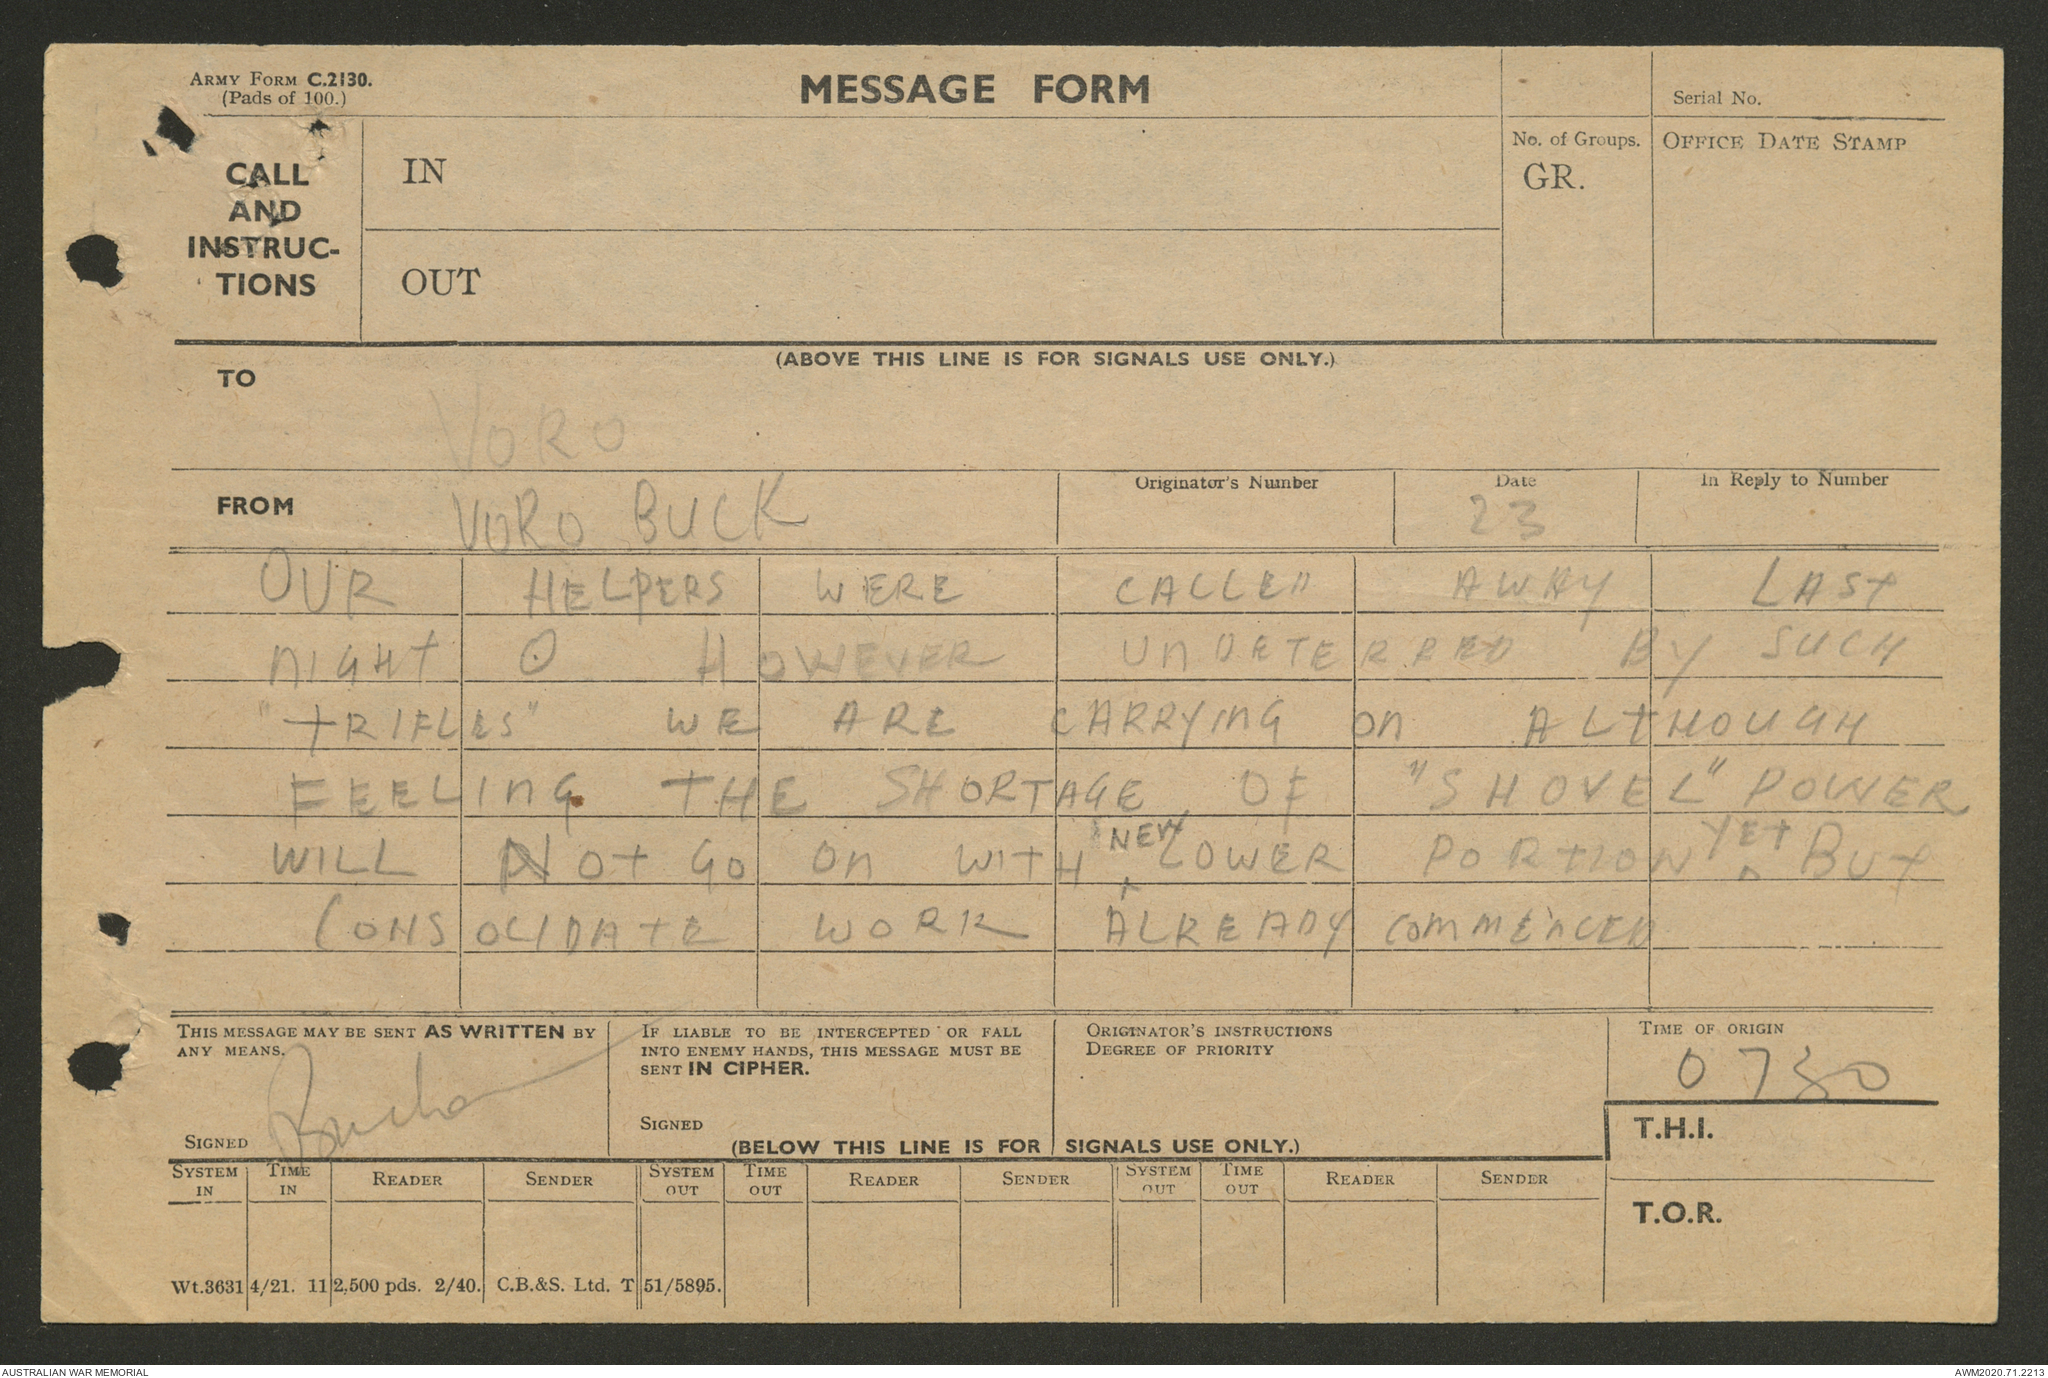 ARMY FORM C.2130.
(Pads of 100.)
MESSAGE FORM
Serial No.
CALL
AND
INSTRUC-
TIONS
IN
OUT
No. of Groups.
GR.
OFFICE DATE STAMP
(ABOVE THIS LINE IS FOR SIGNALS USE ONLY.)
TO
VORO
FROM
VORO BUCK
Originator's Number
Date
23
In Reply to Number
OUR HELPERS WERE CALLED AWAY LAST
NIGHT O HOWEVER UNDETERRED BY SUCH
"TRIFLES" WE ARE CARRYING ON ALTHOUGH
FEELING THE SHORTAGE OF "SHOVEL" POWER
WILL NOT GO ON WITH NEW LOWER PORTION YET BUT
CONSOLIDATE WORK ALREADY COMMENCED
THIS MESSAGE MAY BE SENT AS WRITTEN BY
ANY MEANS.
SIGNED
IF LIABLE TO BE INTERCEPTED OR FALL
INTO ENEMY HANDS, THIS MESSAGE MUST BE
SENT IN CIPHER.
SIGNED
ORIGINATOR'S INSTRUCTIONS
DEGREE OF PRIORITY
TIME OF ORIGIN
0730
(BELOW THIS LINE IS FOR SIGNALS USE ONLY.)
T.H.I.
SYSTEM IN TIME IN READER SENDER SYSTEM OUT TIME OUT READER SENDER SYSTEM OUT TIME OUT READER SENDER
T.O.R.
Wt.3631 4/21. 112,500 pds. 2/40. C.B.&S. Ltd. T 51/5895.
AUSTRALIAN WAR MEMORIAL
AWM2020.71.2213